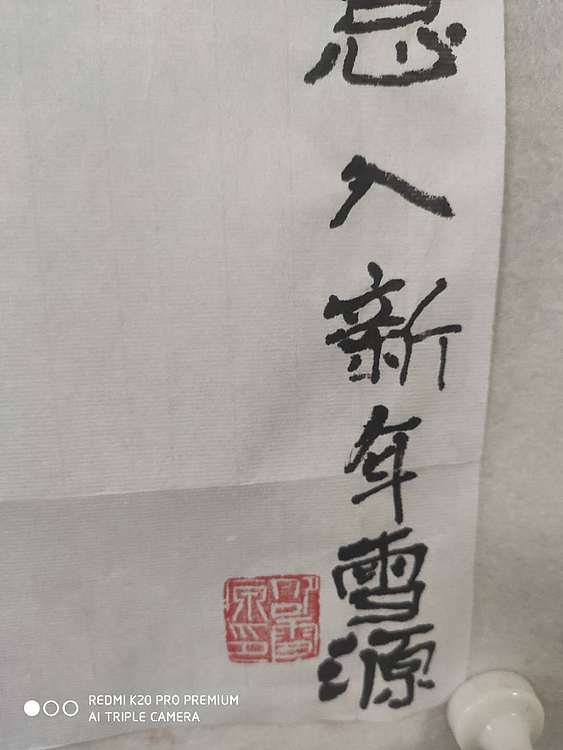 息入新年雪源
REDMI K20 PRO PREMIUM
AI TRIPLE CAMERA